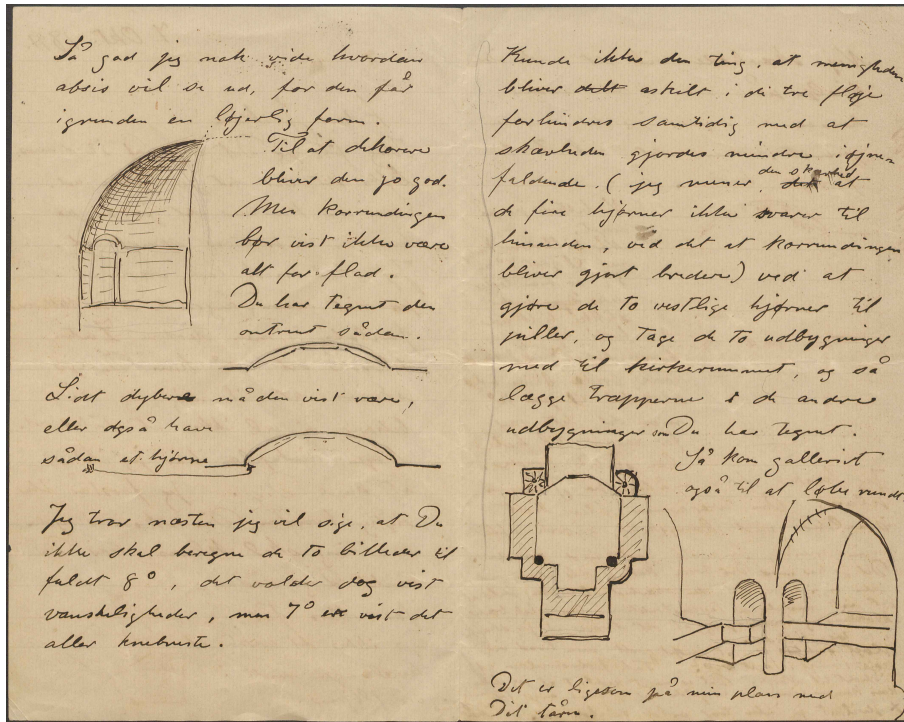 Så gad jeg nok vide hvordan
absis vil se ud, for den får
igrunden en løjerlig form.
Til at dekorere
bliver den jo god.
Men korrundingen
bør vist ikke være
alt for flad.
Du har tegnet den
omtrent sådan.
Lidt dybere må den vist være,
eller også have
sådan et hjørne
Jeg tror næsten jeg vil sige, at Du
ikke skal beregne de to billeder til
fuldt 8°, det volder dog vist
vanskeligheder, men 7° er vist det
aller knebneste.
Kunde ikke den ting, at menigheden
bliver delt adskilt i de tre fløje
forhindres samtidig med at
skævheden gjordes mindre iøjne-
faldende. (jeg mener, den skævhed at
de fire hjørner ikke svarer til
hinanden, ved det at korrundingen
bliver gjort bredere) ved at
gjøre de to vestlige hjørner til
piller, og tage de to udbygninger
med til kirkerummet, og så
lægge trapperne i de andre
udbygninger som Du har tegnet.
Så kom galleriet
også til at løbe rundt
Det er ligesom på min plan med
Dit tårn.